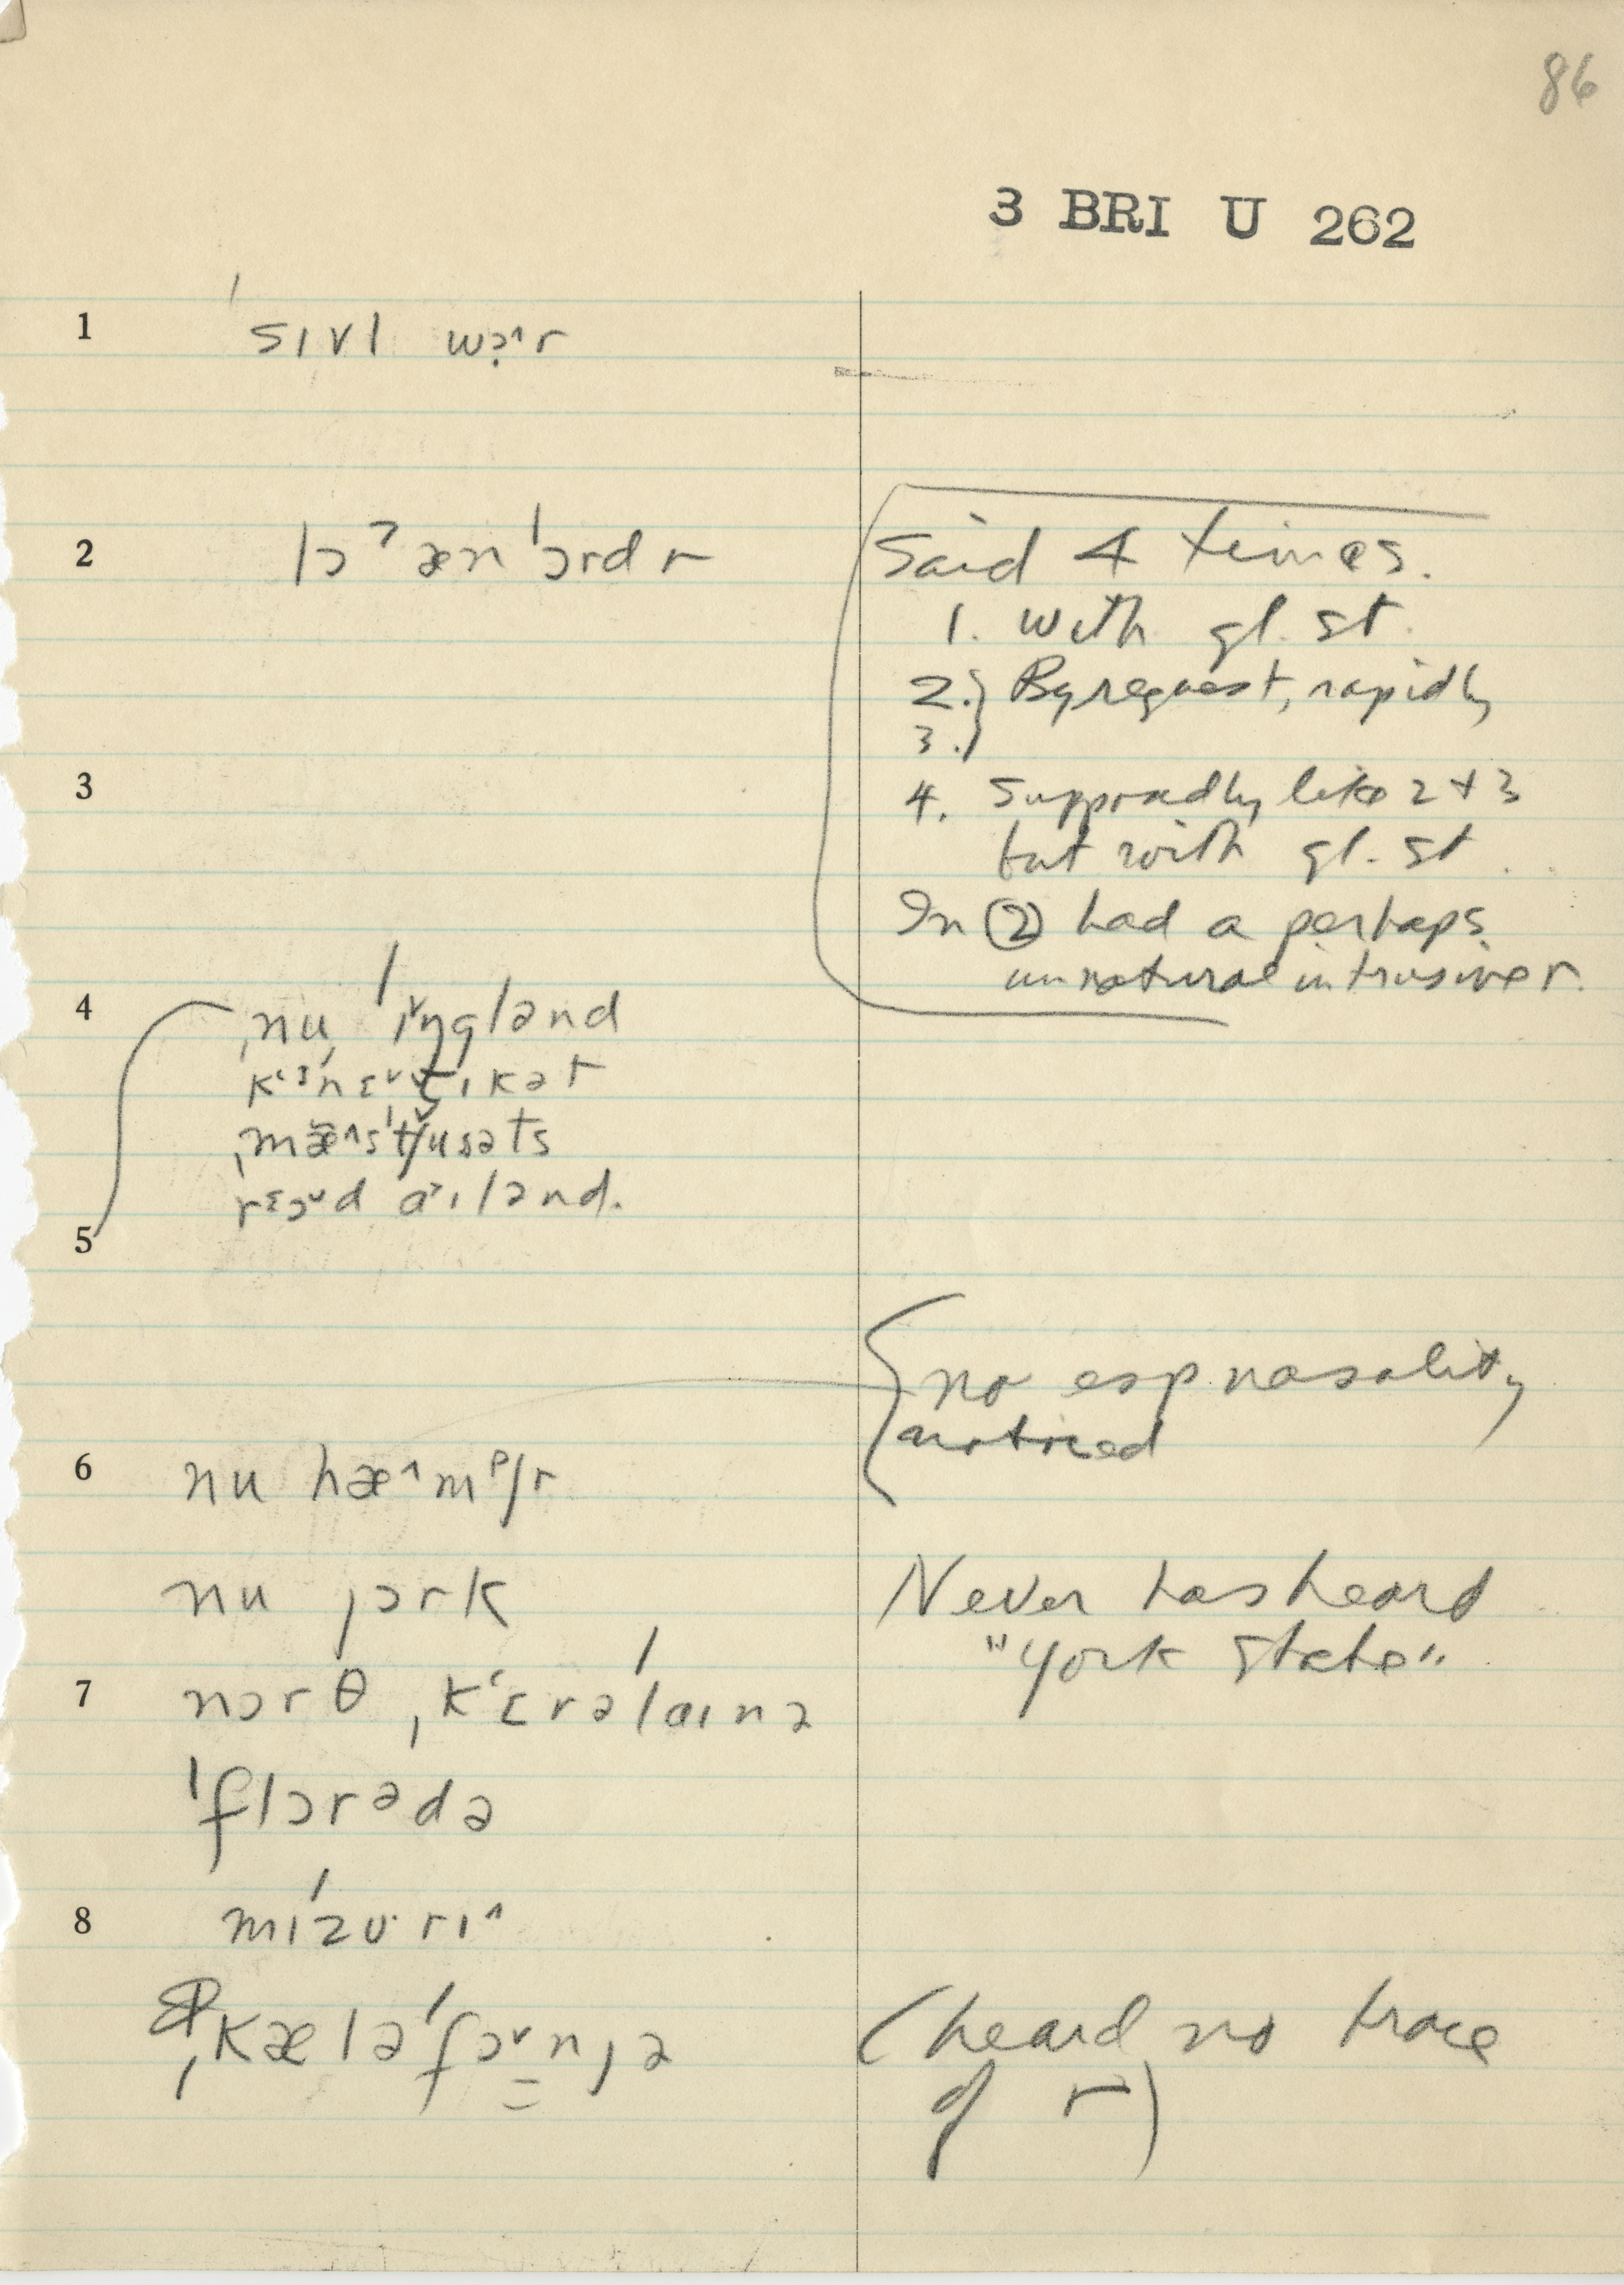 86
3 BRI U 262
1 sɪvl wɔ̣^r
2 lɔˀ æn ˈɔrdr
Said 4 times.
1. with gl. st.
2.} By request, rapidly
3.}
4. Supposedly like 2 + 3
but with gl. st.
In ② had a perhaps
unnatural intrusive r.
3
4 ˌnu ˈɪ˅ŋglənd
ˌmæ̆^sˈtʃusəts
5
no esp nasality
noticed
6 nu hæ^mᵖʃr
nu jɔrk
Never has heard
"York State"
7 nɔrθ ˌkʻɛrəˈlaɪnə
ˈflɔrədə
8 mɪˈzʊ·rɪ^
ˌkæləˈfɔ˅njə
(heard no trace
of r)